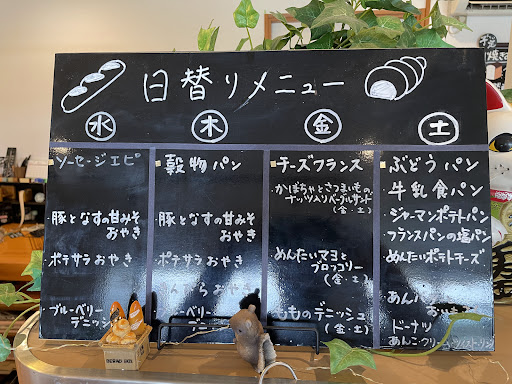 日替りメニュー
水
ソーセージエピ
・豚となすの甘みそ
おやき
・ポテサラおやき
・ブルーベリー
デニッシュ
木
穀物パン
・豚となすの甘みそ
おやき
ポテサラおやき
ベリー
金
チーズフランス
・かぼちゃとさつまいもの
ナッツ入りベーグルサンド
(金・土)
・めんたいマヨと
ブロッコリー
(金・土)
・もものデニッシュ
(金・土)
土
ぶどうパン
牛乳食パン
・ジャーマンポテトパン
・フランスパンの塩パン
めんたいポテトチーズ
・あん
・ドーナツ
BREAD BOX